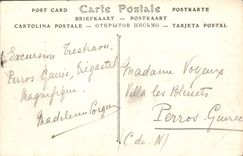 POST CARD Carte Postale POSTKARTE
BRIEFKAART - POSTKAART
CARTOLINA POSTALE - ОТКРЫТОЕ ПИСЬМО - TARJETA POSTAL
Excursion Trestraou,
Perros-Guirec, Trégastel
Magnifique
Madeleine
Madame Voyaux
Villa les Bleuets
Perros-Guirec
C du N